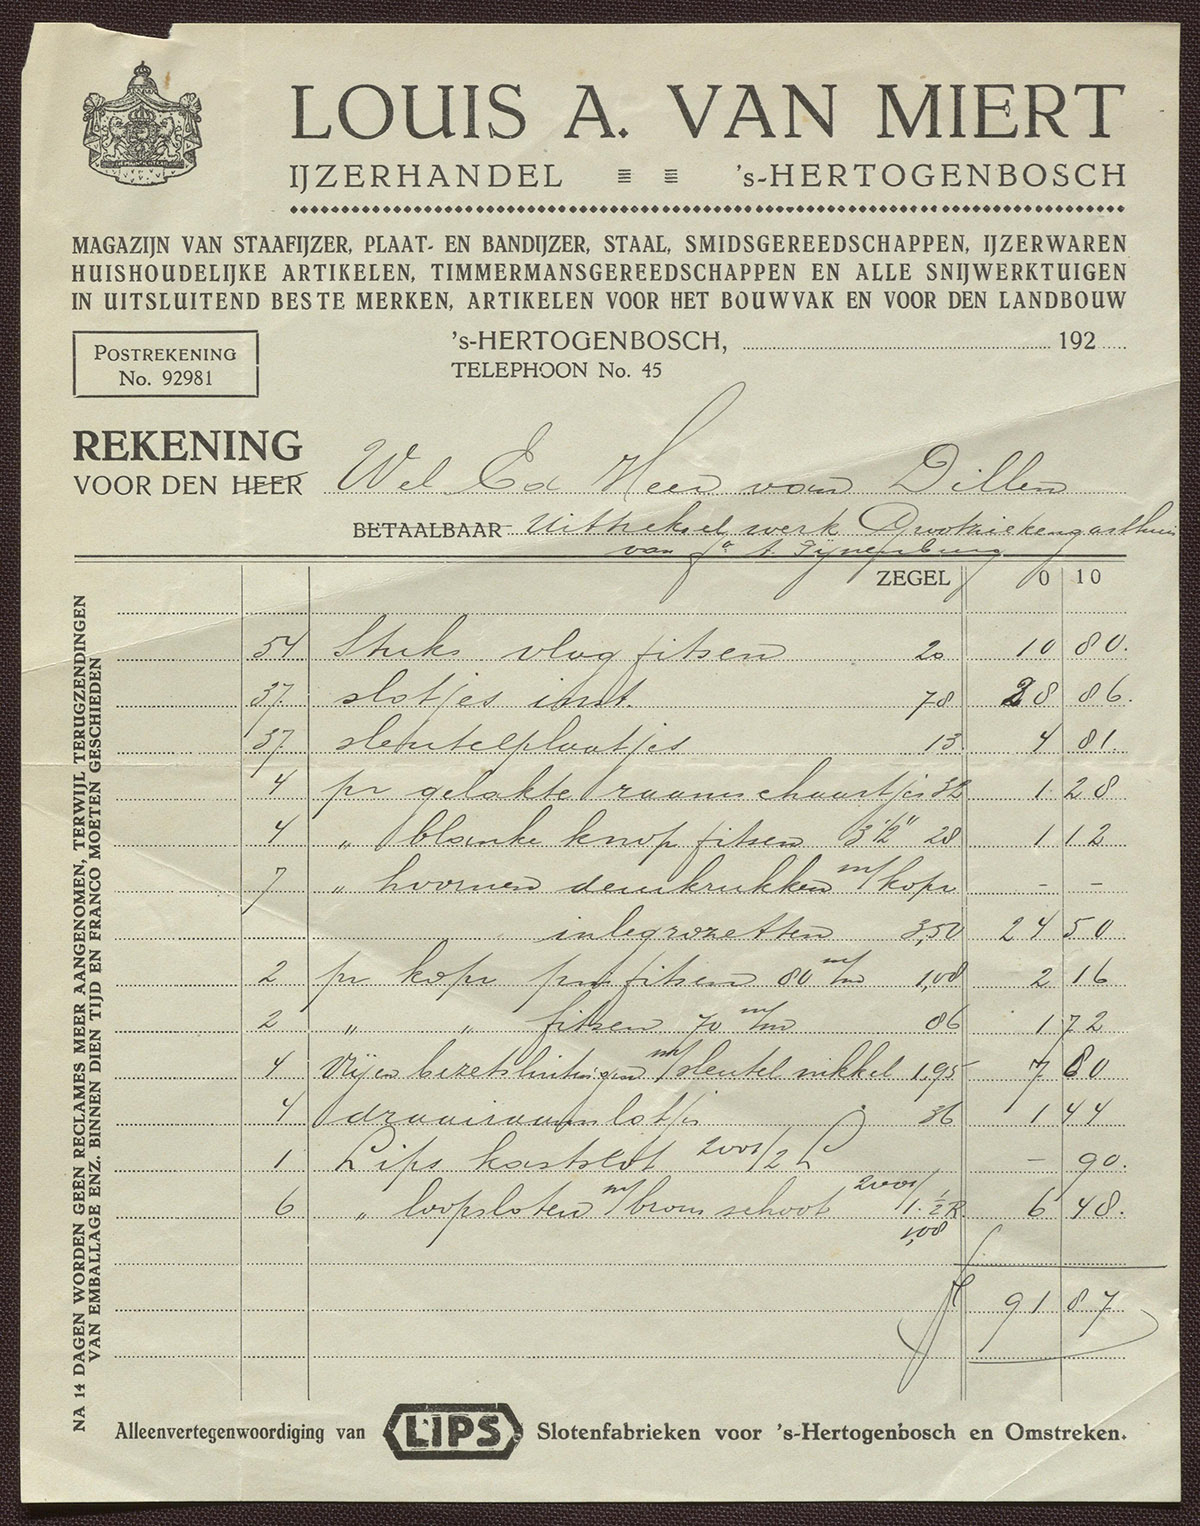 LOUIS A. VAN MIERT
IJZERHANDEL 's-HERTOGENBOSCH
MAGAZIJN VAN STAAFIJZER, PLAAT- EN BANDIJZER, STAAL, SMIDSGEREEDSCHAPPEN, IJZERWAREN
HUISHOUDELIJKE ARTIKELEN, TIMMERMANSGEREEDSCHAPPEN EN ALLE SNIJWERKTUIGEN
IN UITSLUITEND BESTE MERKEN, ARTIKELEN VOOR HET BOUWVAK EN VOOR DEN LANDBOUW
POSTREKENING
No. 92981
's-HERTOGENBOSCH, 192
TELEPHOON No. 45
REKENING
VOOR DEN HEER Wel Ed Heer van Dillen
BETAALBAAR Uittreksel werk Grootziekengasthuis
van
ZEGEL 0 10
54 Stuks vlag fitsen 20 10 80.
37. slotjes inst. 78 28 86.
37 sleutelplaatjes 13 4 81.
4 pr gelakte raamschaartjes 32 1 28
4 " blanke knop fitsen 3 1/2" 28 1 12
7 " hoornen deurkrukken m/kopr - -
inlegrozetten 3,50 24 50
2 pr kopr fitsen 80 m/m 1,08 2 16
2 " " fitsen 70 m/m 86 1 72
4 Vrij en bezetsluitingen m/sleutel nikkel 1,95 7 80
4 draairaamslotjes 36 1 44
1 Lips kastslot 2001/2 L - 90.
6 " loopsloten m/brons schoot 2001/
1. 1/2 R. 6 48.
1,08
fl 91 87
NA 14 DAGEN WORDEN GEEN RECLAMES MEER AANGENOMEN, TERWIJL TERUGZENDINGEN
VAN EMBALLAGE ENZ. BINNEN DIEN TIJD EN FRANCO MOETEN GESCHIEDEN
Alleenvertegenwoordiging van LIPS Slotenfabrieken voor 's-Hertogenbosch en Omstreken.